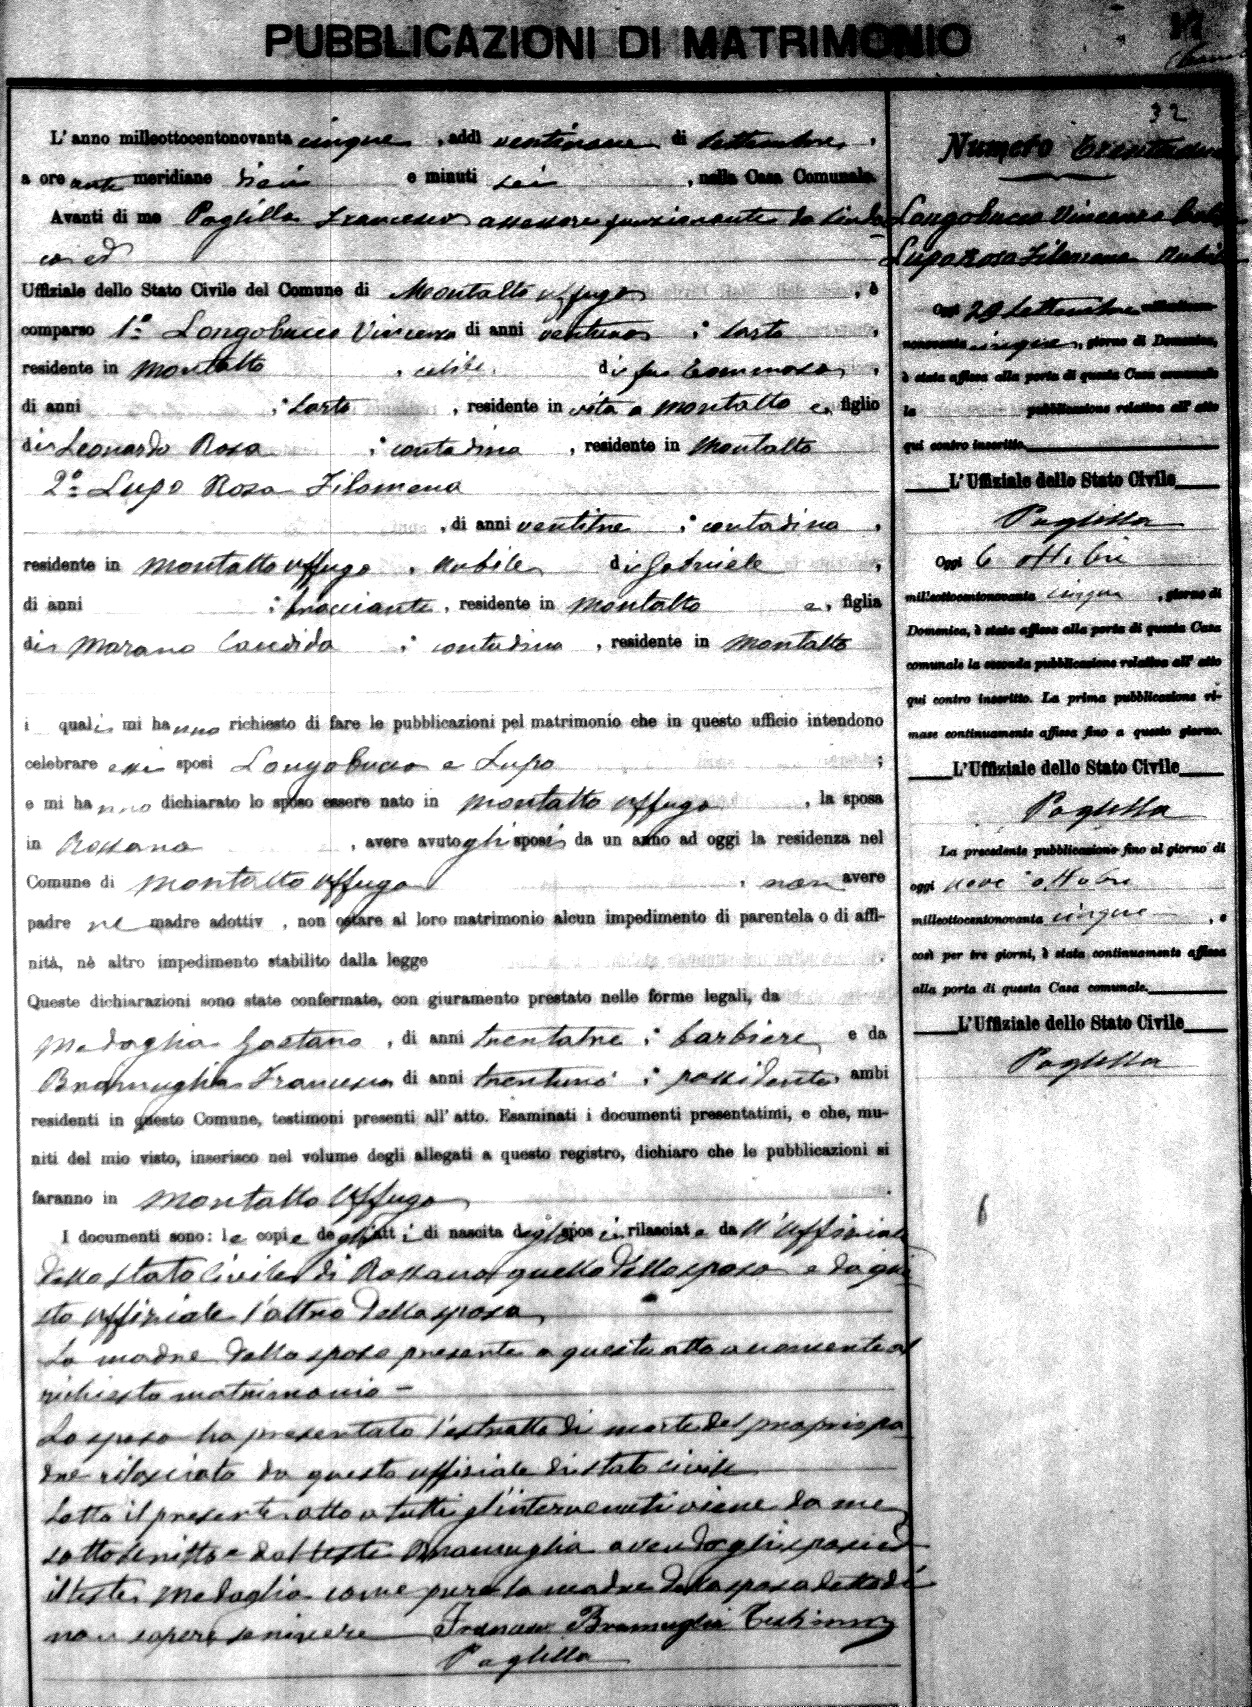 PUBBLICAZIONI DI MATRIMONIO
32
L'anno milleottocentonovanta cinque, addì ventinove di Settembre,
a ore ante meridiane dieci e minuti sei, nella Casa Comunale.
Avanti di me Paglilla Francesco assessore funzionante da Sinda
co ed
Uffiziale dello Stato Civile del Comune di Montalto Uffugo, è
comparso 1º Longobucco Vincenzo di anni ventuno; sarto,
residente in Montalto, celibe, di fu Tommaso,
di anni ; Sarto, residente in vita a Montalto e, figlio
di Leonardo Rosa; contadina, residente in Montalto
2º Lupo Rosa Filomena
, di anni ventitre; contadina,
residente in Montalto Uffugo, Nubile, di Gabriele,
di anni ; bracciante, residente in Montalto e, figlia
di Marano Candida; contadina, residente in Montalto
i quali mi hanno richiesto di fare le pubblicazioni pel matrimonio che in questo ufficio intendono
celebrare essi sposi Longobucco e Lupo;
e mi hanno dichiarato lo sposo essere nato in Montalto Uffugo, la sposa
in Rossano, avere avuto gli sposi da un anno ad oggi la residenza nel
Comune di Montalto Uffugo, non avere
padre ne madre adottiv , non ostare al loro matrimonio alcun impedimento di parentela o di affi-
nità, nè altro impedimento stabilito dalla legge.
Queste dichiarazioni sono state confermate, con giuramento prestato nelle forme legali, da
Medaglia Gaetano, di anni trentatre; barbiere e da
Bramuglia Francesco di anni trentuno; possidente ambi
residenti in questo Comune, testimoni presenti all'atto. Esaminati i documenti presentatimi, e che, mu-
niti del mio visto, inserisco nel volume degli allegati a questo registro, dichiaro che le pubblicazioni si
faranno in Montalto Uffugo.
I documenti sono: le copie degli atti di nascita degli sposi rilasciate da ll'Uffiziale
dello stato Civile di Rossano quella dello sposo e da que
sto uffiziale l'altro della sposa
La madre dello sposo presente a questo atto acconsente al
richiesto matrimonio -
Lo sposo ha presentato l'estratto di morte del proprio pa
dre rilasciato da questo uffiziale di stato civile
Letto il presente atto a tutti gl'intervenuti viene da me
sottoscritto e dal teste Bramuglia avendo gli sposi ed
il teste Medaglia come pure la madre dello sposo detto di
non sapere scrivere Francesco Bramuglia Testimone
Paglilla
Numero trentadue
Longobucco Vincenzo
Lupo Rosa Filomena Nubile
Oggi 29 Settembre milleotto-
novanta cinque, giorno di Domenica,
è stata affissa alla porta di questa Casa comunale
la pubblicazione relativa all'atto
qui contro inscritto
L'Uffiziale dello Stato Civile
Paglilla
Oggi 6 ottobre
milleottocentonovanta cinque, giorno di
Domenica, è stata affissa alla porta di questa Casa
comunale la seconda pubblicazione relativa all'atto
qui contro inscritto. La prima pubblicazione ri-
mase continuamente affissa fino a questo giorno.
L'Uffiziale dello Stato Civile
Paglilla
La precedente pubblicazione fino al giorno di
oggi nove ottobre
milleottocentonovanta cinque, e
così per tre giorni, è stata continuamente affissa
alla porta di questa Casa comunale.
L'Uffiziale dello Stato Civile
Paglilla